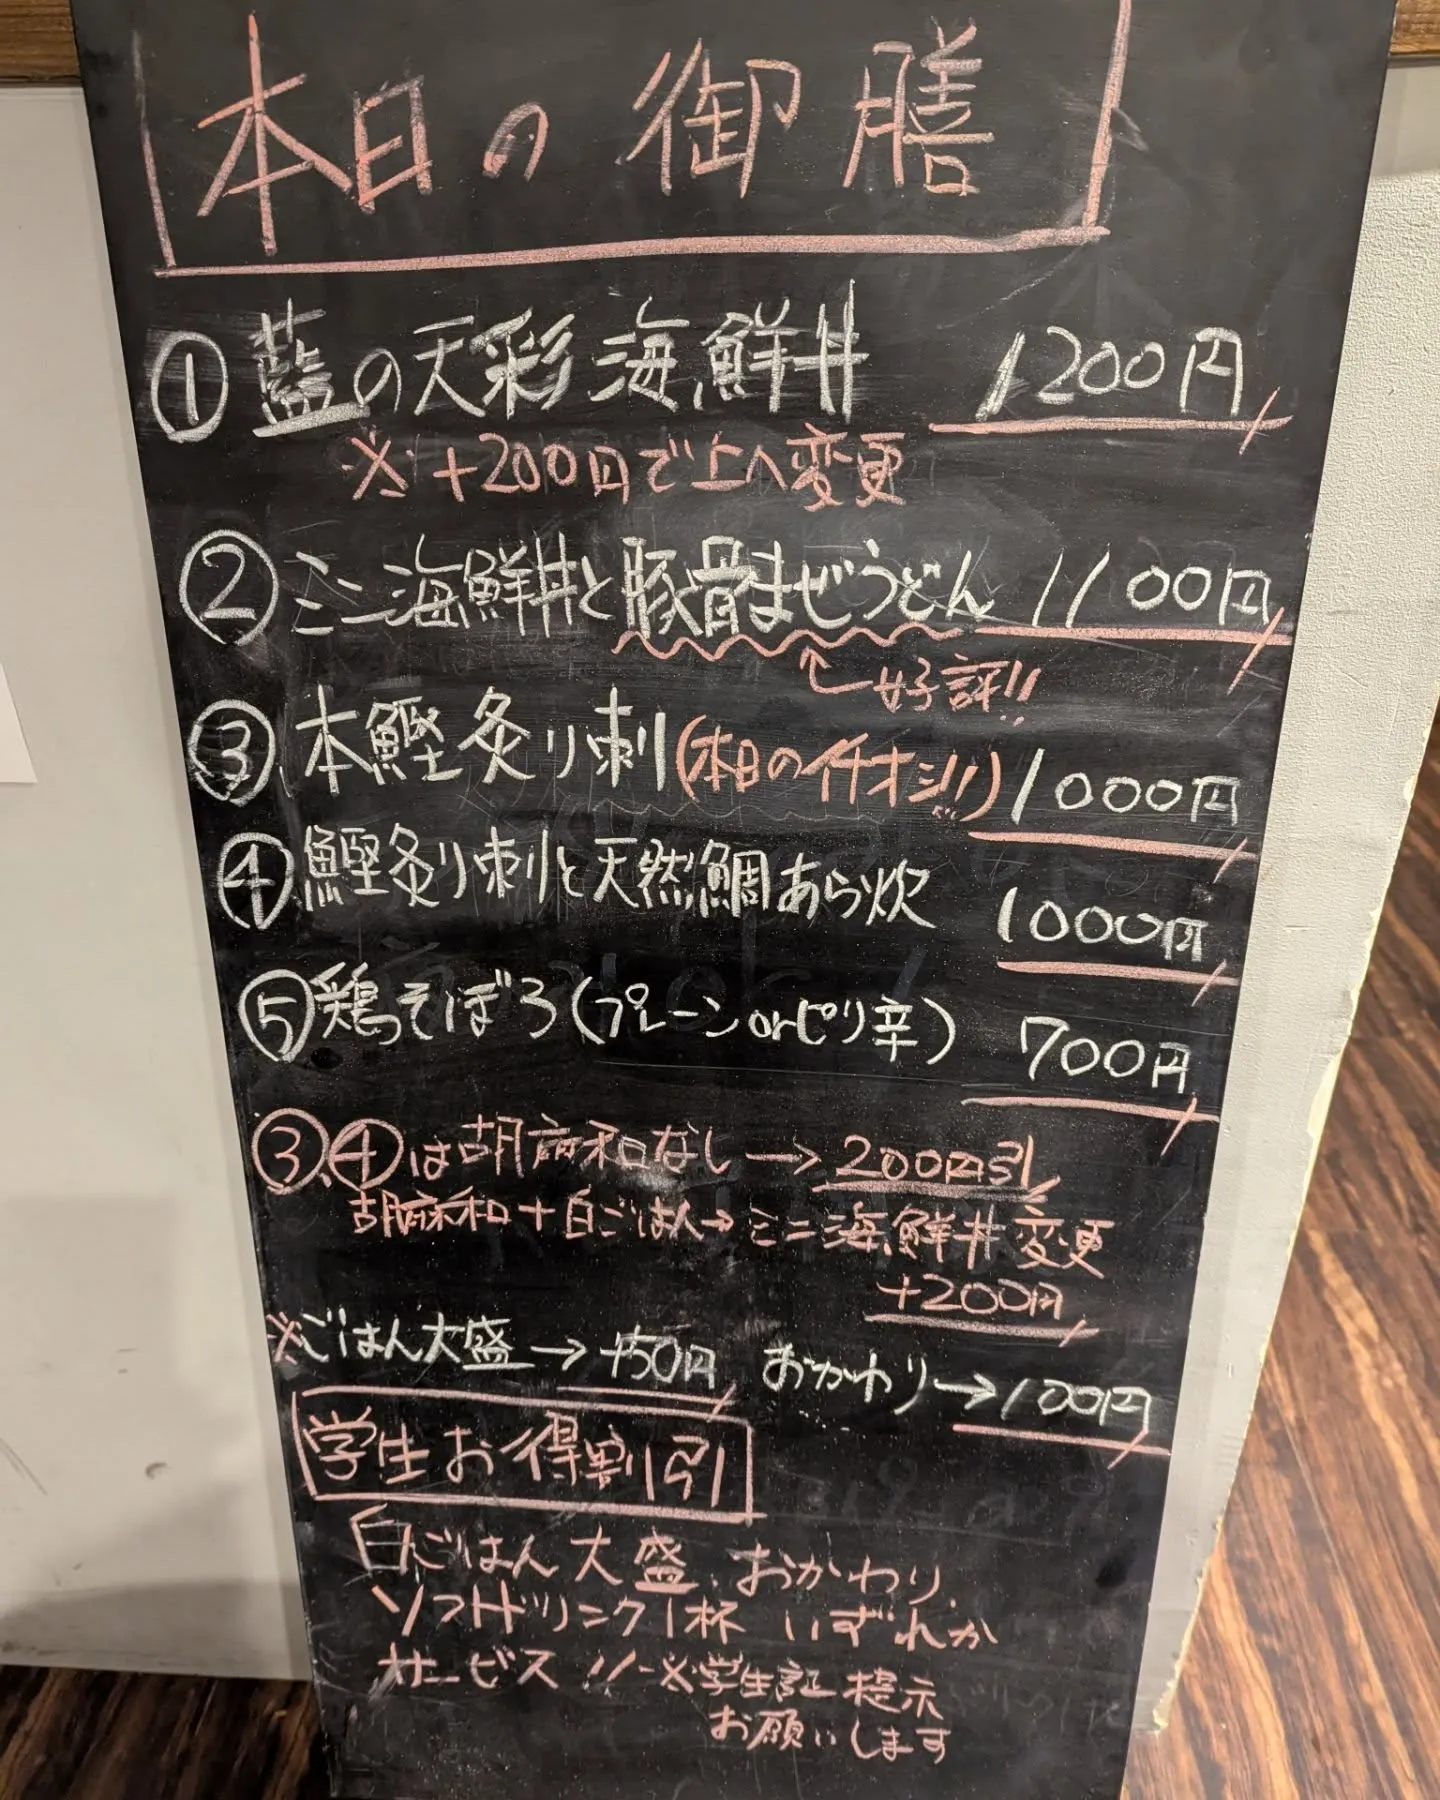 本日の御膳
① 藍の天彩海鮮丼 1200円
※+200円で上へ変更
② ミニ海鮮丼と豚骨まぜうどん 1100円
好評!!
③ 本鰹炙り刺(本日のイチオシ!!) 1000円
④ 鰹炙り刺と天然鯛あら炊 1000円
⑤ 鶏そぼろ(プレーンorピリ辛) 700円
③、④は胡麻和なし→200円引
胡麻和+白ごはん→ミニ海鮮丼変更
+200円
※ごはん大盛→+50円 おかわり→100円
学生お得割引
白ごはん大盛、おかわり、
ソフトドリンク1杯 いずれか
サービス!! ※学生証提示
お願いします